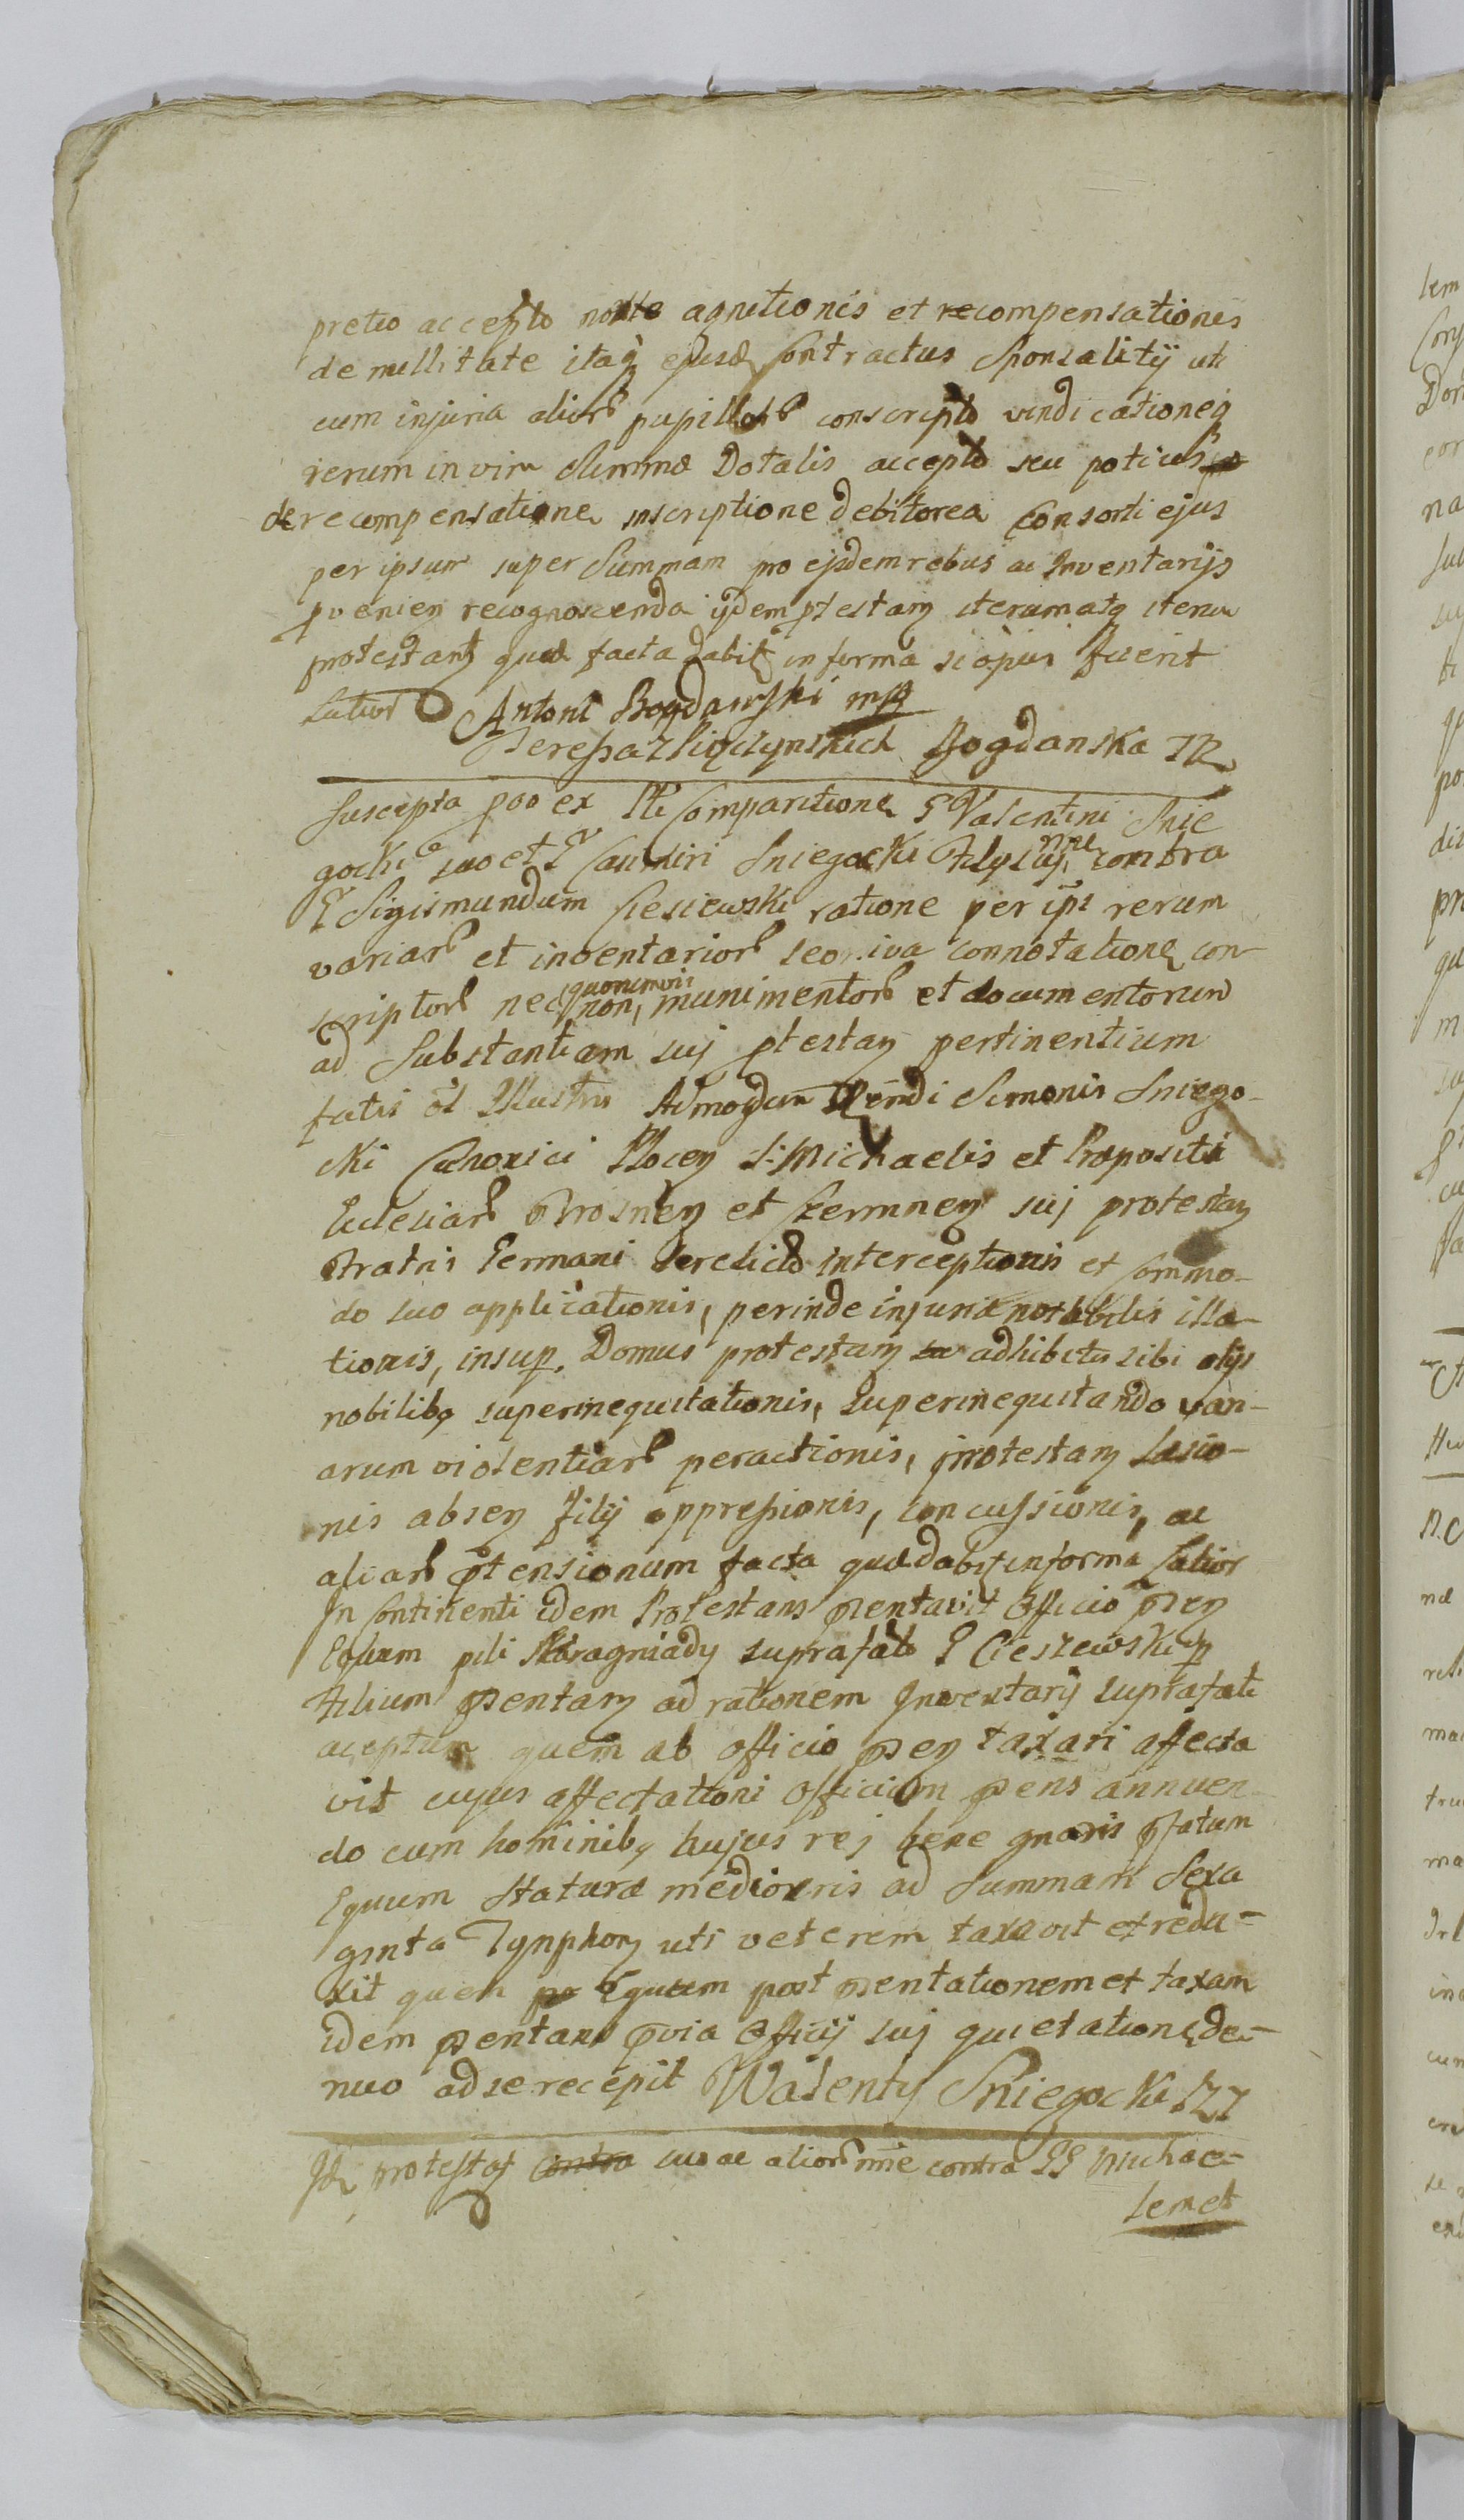 pretio accepto agnitionis et recompensationis
de nullitate itaq ejusd Contractus Sponsalitÿ uti
cum injuria alior pupillor conscripto vindicationeq
rerum in vim Summæ Dotalis accepto seu potius
de recompensatione inscriptione debitorea Consorti ejus
per ipsum super Summam pro ejsdem rebus ac Inventarijs
pvenien recognoscenda ijdem ptestan iterum atq iterum
protestant quæ facta dabit in forma si opus fuerit
Lation Antoni Bogdanski mp
Teressa z Bogdanska
Suscepta pao ex Comparitione G Valentini Snie
gocki suo et G Casimiri Sniegocki Filij suj nne contra
G Sigismundum Ciesiewski ratione per ips rerum
variar et inventarior connotatione con
scriptor nec non quorumvis munimentor et documentorum
ad Substantiam suj ptestan pertinentium
fatis ol Illustris Admodum Rendi Simonis Sniego-
cki Canonici Plocen S: Michaelis et Præpositi
Ecclesiar et suj protestan
Fratris Germani derelicto interceptionis et Commo-
do suo applicationis, perinde injuriæ notabilis illa-
tionis, insup Domus protestan adhibitis sibi alijs
nobilibq superinequitationis, Superinequitando vari-
arum violentiar peractionis, protestan Læsio-
nis absen Filij oppressionis, concussionis, ac
aliar ptensionum facta quæ dabit in forma Latior
In Continenti idem Protestans psentavit Officio psen
Equum pili Skarogniady suprafato G Cieszewski p
Filium psentan ad rationem Inventarij suprafati
aceptum quem ab officio psen taxari affecta
vit cujus affectationi Officium psens annuen
do cum hominibq hujus rej bene gnaris pfatum
Equum Staturæ mediocris ad Summam Sexa
ginta Tynphon uti veterem taxavit et redu-
xit quem Equum post psentationem et taxam
idem psentans pvia Officij suj quietatione de-
nuo ad se recepit Walenty Sniegocki
Id protestat contra suo ac alior nne contra GG Michae-
lem et